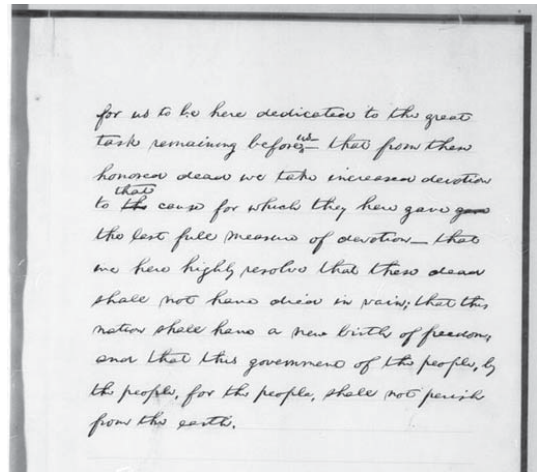 for us to be here dedicated to the great
task remaining before us — that from these
honored dead we take increased devotion
to that cause for which they here gave gave
the last full measure of devotion — that
we here highly resolve that these dead
shall not have died in vain; that this
nation shall have a new birth of freedom;
and that this government of the people, by
the people, for the people, shall not perish
from the earth.